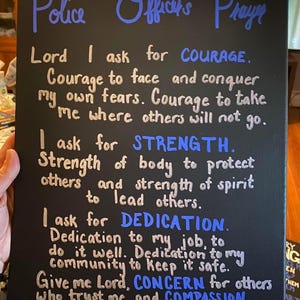 Police Officers Prayer
Lord I ask for COURAGE.
Courage to face and conquer
my own fears. Courage to take
me where others will not go.
I ask for STRENGTH.
Strength of body to protect
others and strength of spirit
to lead others.
I ask for DEDICATION.
Dedication to my job, to
do it well. Dedication to my
community to keep it safe.
Give me Lord, CONCERN for others
who trust me and COMPASSION